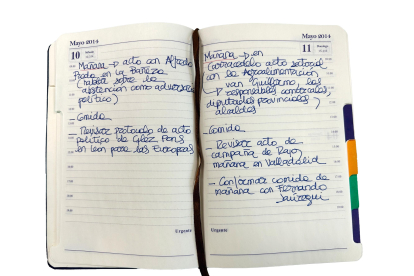 Mayo 2014
10 Sábado
Mañana → acto con Alfredo
Prado en la Bañeza
(hablar sobre la
abstención como adversario
político)
- Comida
- Revisar protocolo de acto
político de Glez Pons
en León para las Europeas
Urgente
Mayo 2014
11 Domingo
Mañana → en
Carracedelo acto sectorial
con la Agroalimentación,
van Guillermo, los
→ responsables comarcales,
diputados provinciales,
alcaldes
- Comida
- Revisar acto de
campaña de Rajoy
mañana en Valladolid
- Confirmar comida de
mañana con Fernando
Urgente